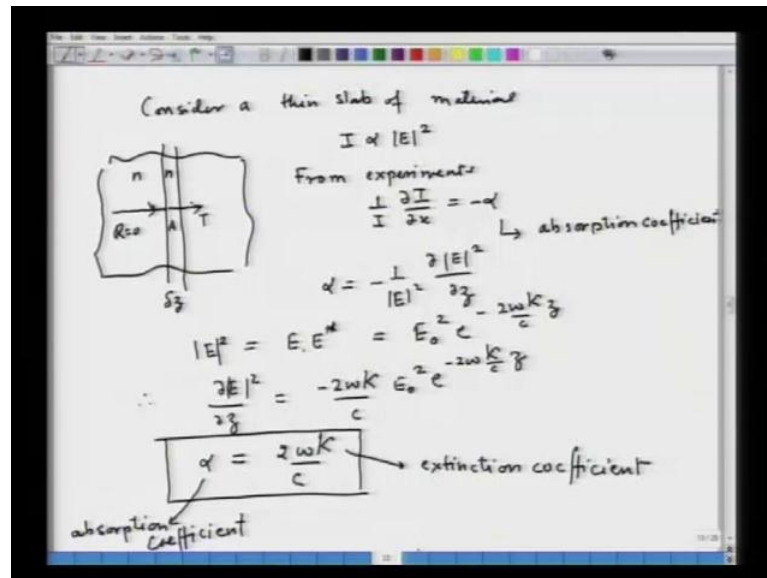 File Edit View Insert Actions Tools Help
Consider a thin slab of material
I α |E|²
n n
From experiments
1/I ∂I/∂x = -α
R=0 A T
↳ absorption coefficient
δz
α = - 1/|E|² ∂|E|²/∂z
|E|² = E.E* = E₀² e^(-2ωK/c z)
∴ ∂|E|²/∂z = -2ωK/c E₀² e^(-2ω K/c z)
α = 2ωK/c → extinction coefficient
absorption
coefficient